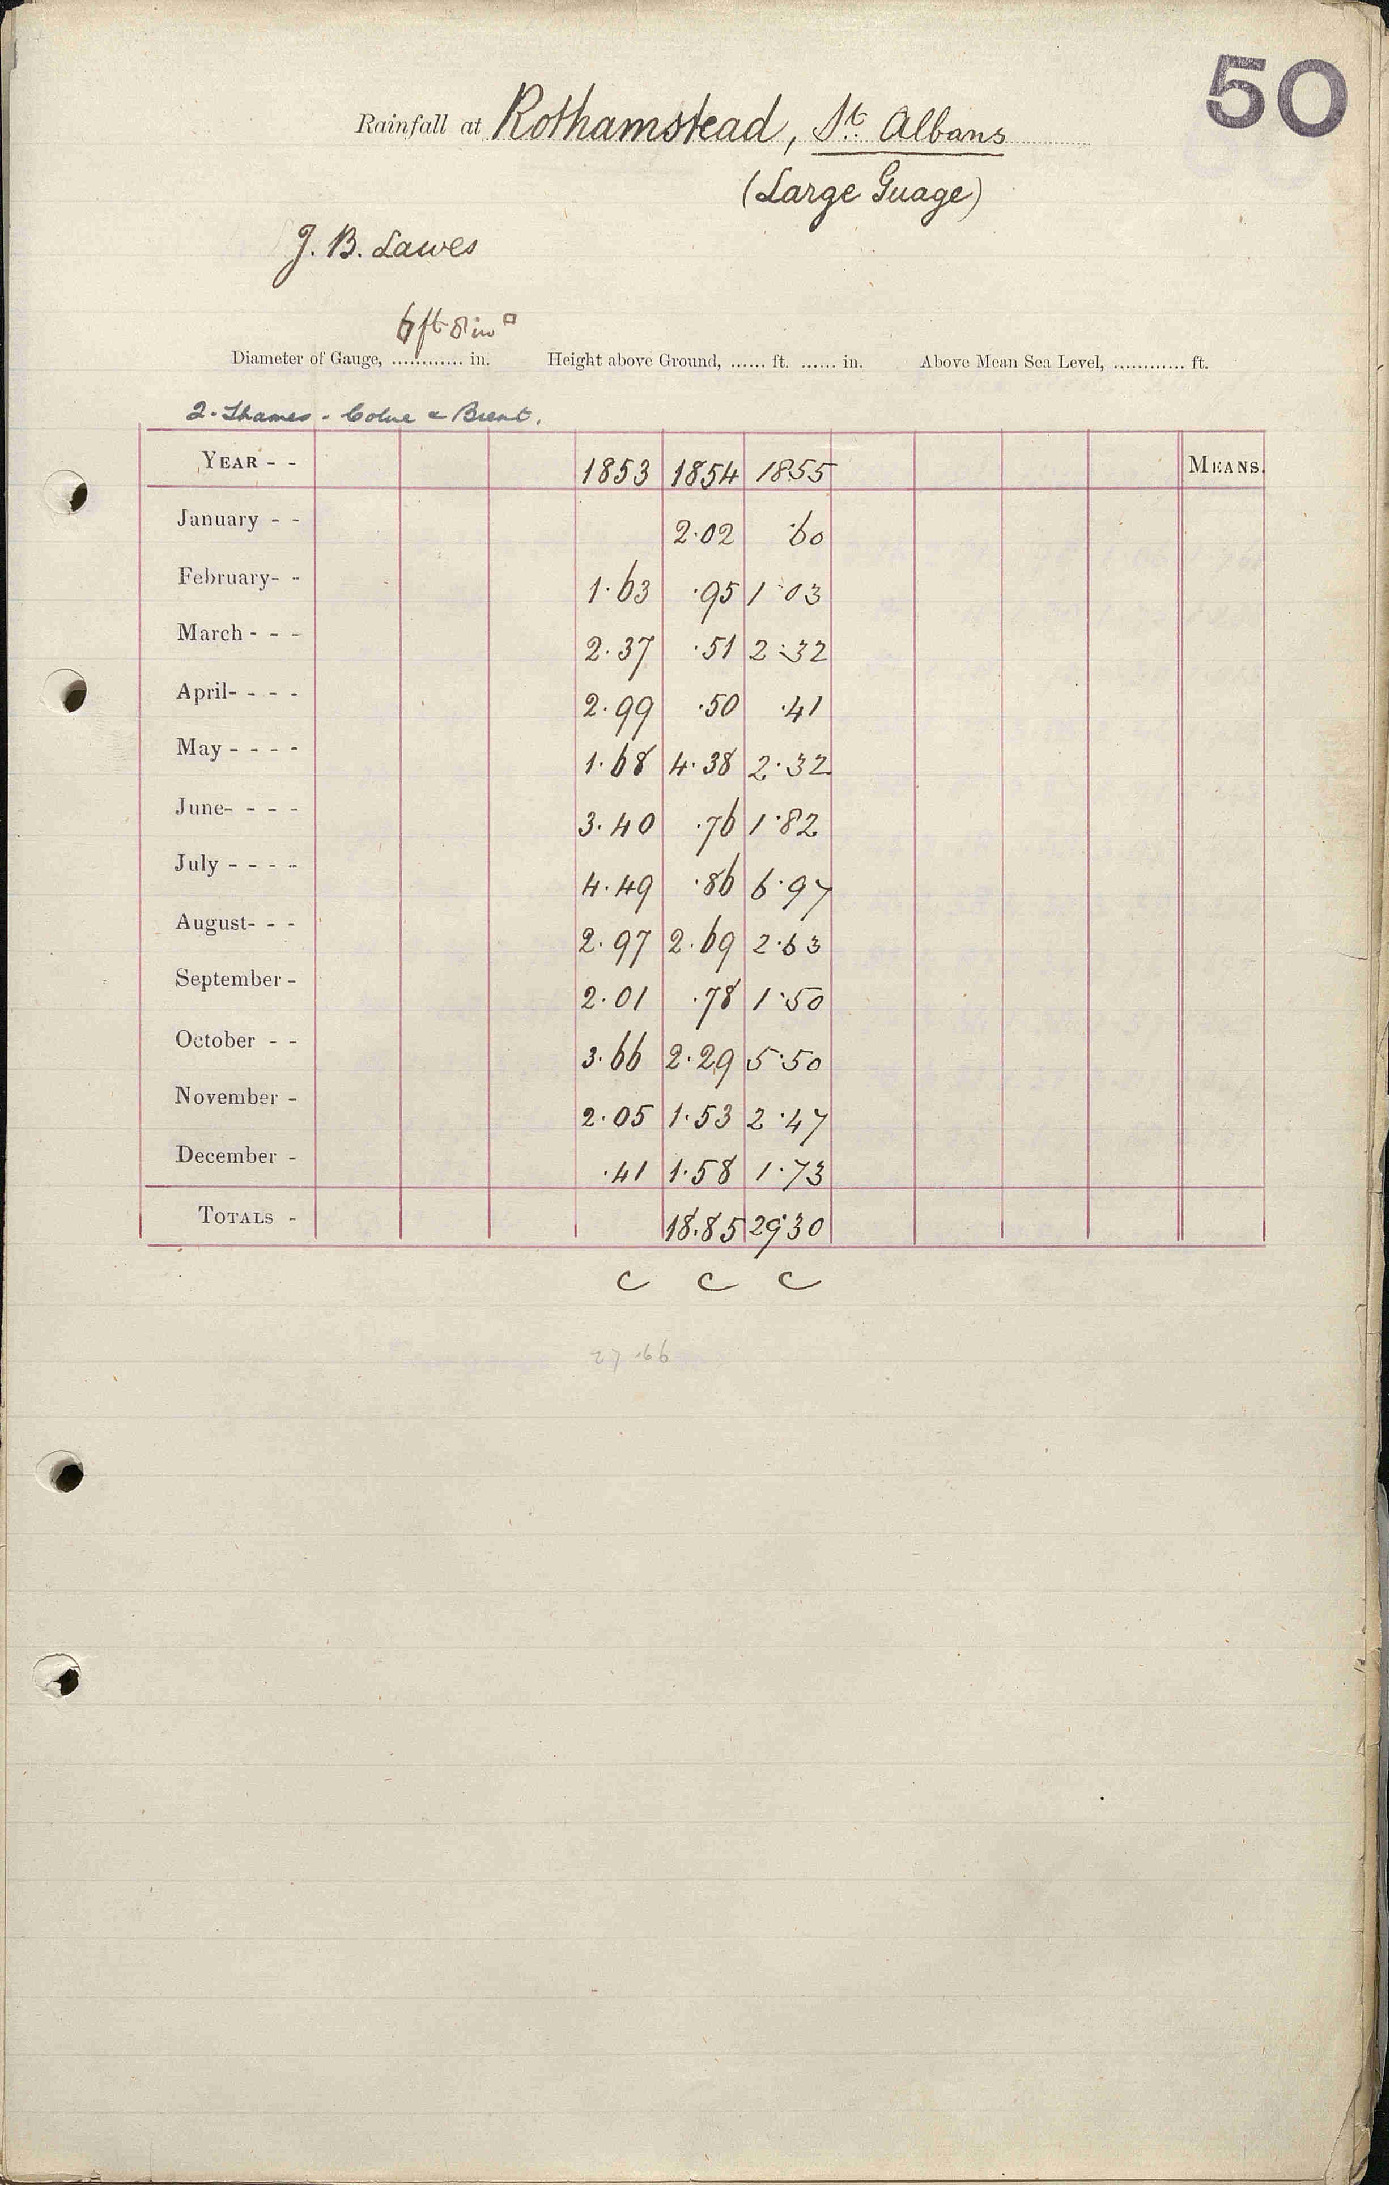 50
Rainfall at Rothamstead, St. Albans
(Large Guage)
J. B. Lawes
6 ft 8 in □
Diameter of Gauge, ............ in. Height above Ground, ...... ft. ...... in. Above Mean Sea Level, ............ ft.
2. Thames - Colne & Brent.
YEAR - - 1853 1854 1855 MEANS.
January - - 2.02 .60
February- - 1.63 .95 1.03
March - - - 2.37 .51 2.32
April- - - - 2.99 .50 .41
May - - - - 1.68 4.38 2.32
June- - - - 3.40 .76 1.82
July - - - - 4.49 .86 6.97
August- - - 2.97 2.69 2.63
September - 2.01 .78 1.50
October - - 3.66 2.29 5.50
November - 2.05 1.53 2.47
December - .41 1.58 1.73
TOTALS - 18.85 29.30
C C C
27.66